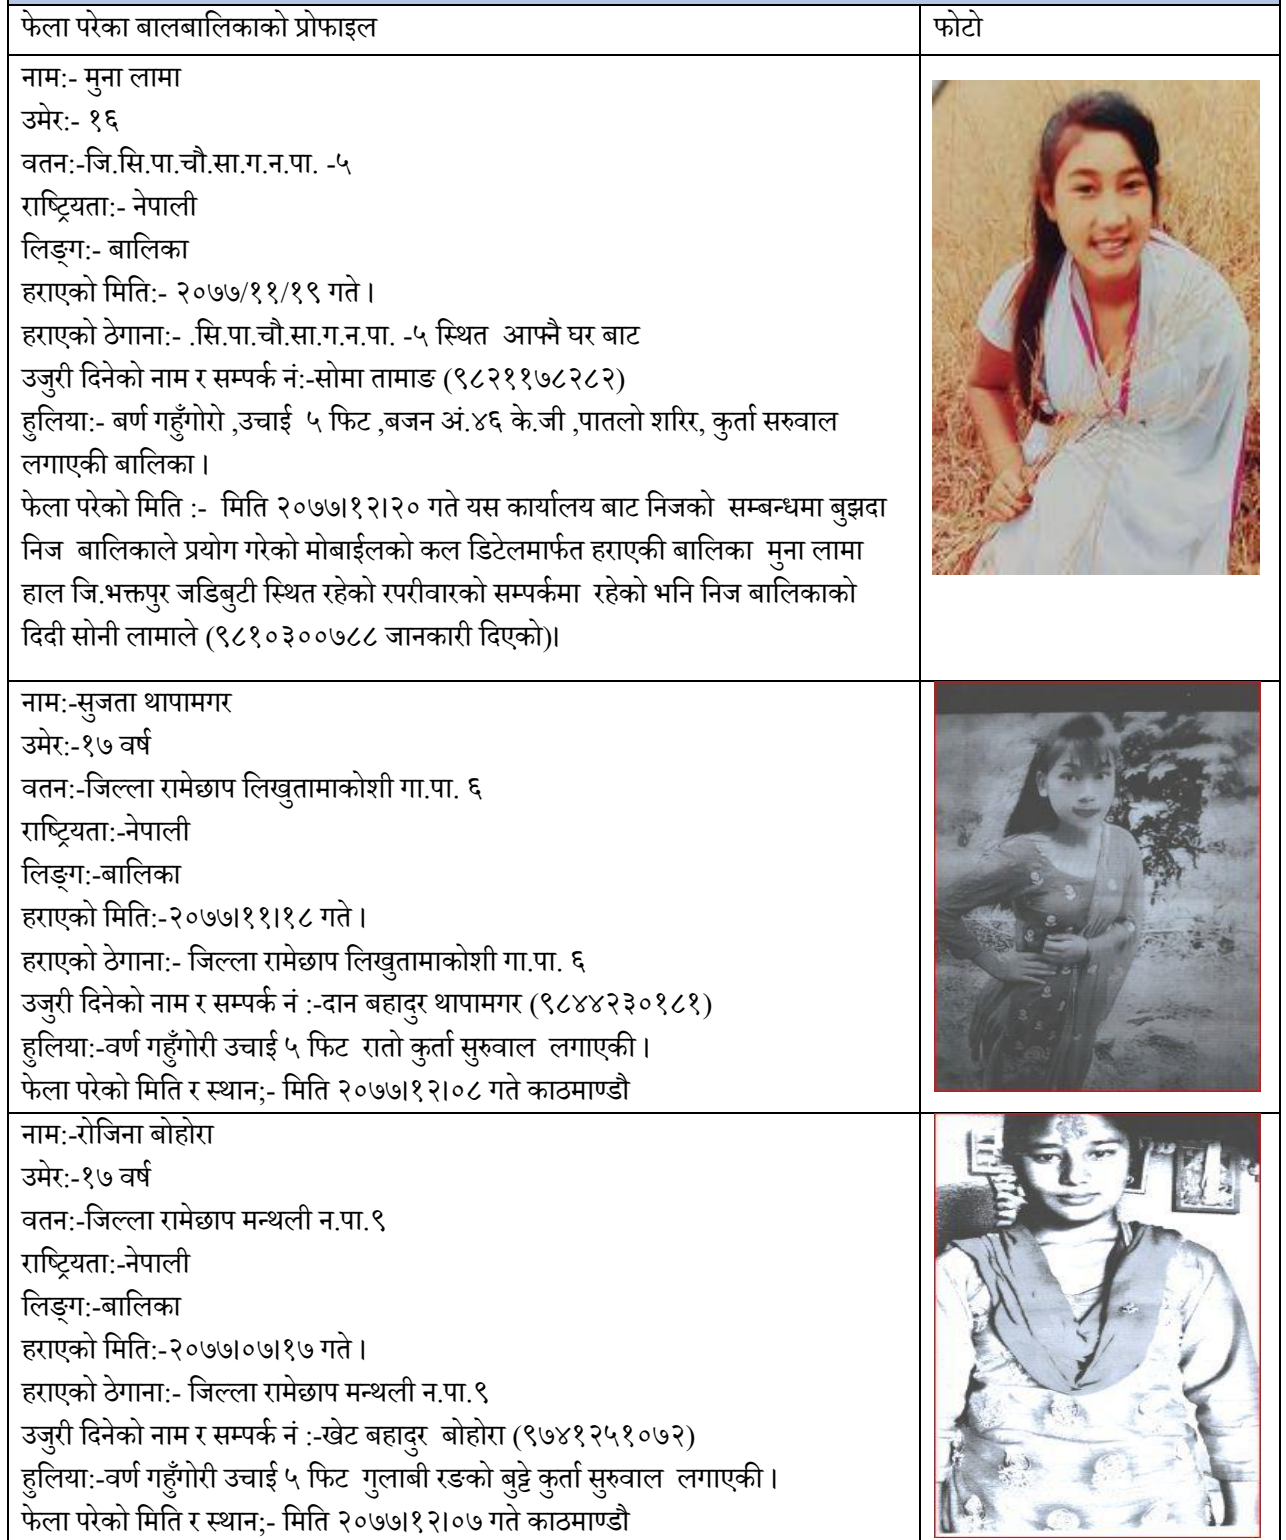 फेला परेका बालबालिकाको प्रोफाइल
फोटो
नाम:- मुना लामा
उमेर:- १६
वतन:-जि.सि.पा.चौ.सा.ग.न.पा. -५
राष्ट्रियता:- नेपाली
लिङ्ग:- बालिका
हराएको मिति:- २०७७/११/१९ गते ।
हराएको ठेगाना:- .सि.पा.चौ.सा.ग.न.पा. -५ स्थित आफ्नै घर बाट
उजुरी दिनेको नाम र सम्पर्क नं:-सोमा तामाङ (९८२११७८२८२)
हुलिया:- बर्ण गहुँगोरो ,उचाई ५ फिट ,बजन अं.४६ के.जी ,पातलो शरिर, कुर्ता सरुवाल
लगाएकी बालिका ।
फेला परेको मिति :- मिति २०७७।१२।२० गते यस कार्यालय बाट निजको सम्बन्धमा बुझदा
निज बालिकाले प्रयोग गरेको मोबाईलको कल डिटेलमार्फत हराएकी बालिका मुना लामा
हाल जि.भक्तपुर जडिबुटी स्थित रहेको रपरीवारको सम्पर्कमा रहेको भनि निज बालिकाको
दिदी सोनी लामाले (९८१०३००७८८ जानकारी दिएको)।
नाम:-सुजता थापामगर
उमेर:-१७ वर्ष
वतन:-जिल्ला रामेछाप लिखुतामाकोशी गा.पा. ६
राष्ट्रियता:-नेपाली
लिङ्ग:-बालिका
हराएको मिति:-२०७७।११।१८ गते ।
हराएको ठेगाना:- जिल्ला रामेछाप लिखुतामाकोशी गा.पा. ६
उजुरी दिनेको नाम र सम्पर्क नं :-दान बहादुर थापामगर (९८४४२३०१८१)
हुलिया:-वर्ण गहुँगोरी उचाई ५ फिट रातो कुर्ता सुरुवाल लगाएकी ।
फेला परेको मिति र स्थान;- मिति २०७७।१२।०८ गते काठमाण्डौ
नाम:-रोजिना बोहोरा
उमेर:-१७ वर्ष
वतन:-जिल्ला रामेछाप मन्थली न.पा.९
राष्ट्रियता:-नेपाली
लिङ्ग:-बालिका
हराएको मिति:-२०७७।०७।१७ गते ।
हराएको ठेगाना:- जिल्ला रामेछाप मन्थली न.पा.९
उजुरी दिनेको नाम र सम्पर्क नं :-खेट बहादुर बोहोरा (९७४१२५१०७२)
हुलिया:-वर्ण गहुँगोरी उचाई ५ फिट गुलाबी रङको बुट्टे कुर्ता सुरुवाल लगाएकी ।
फेला परेको मिति र स्थान;- मिति २०७७।१२।०७ गते काठमाण्डौ